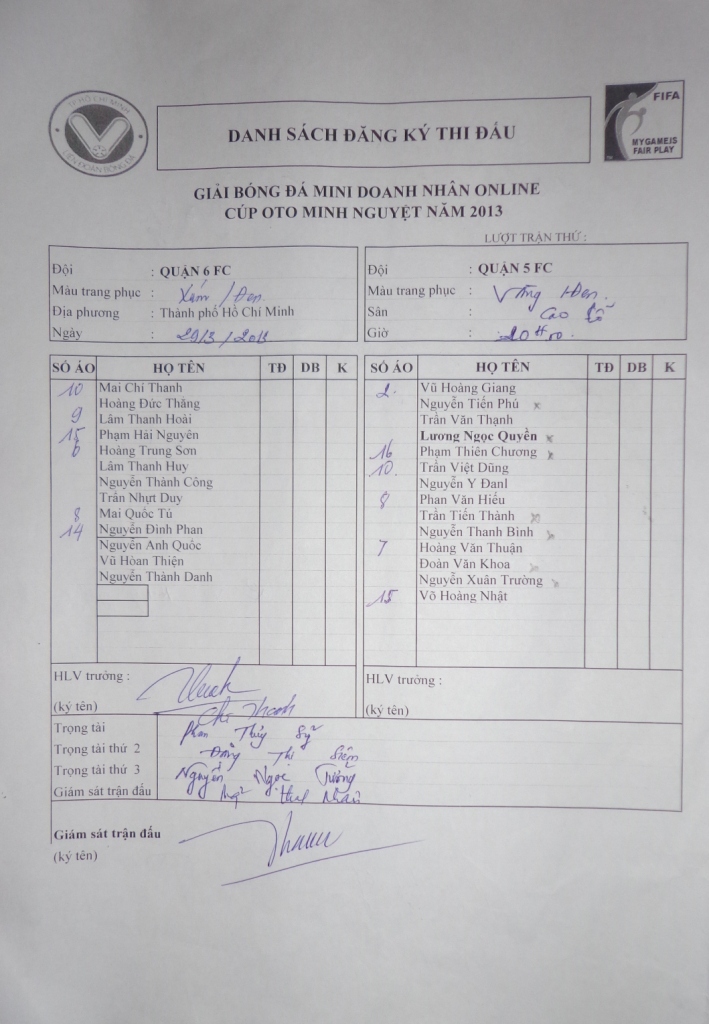 TP HỒ CHÍ MINH
LIÊN ĐOÀN BÓNG ĐÁ
DANH SÁCH ĐĂNG KÝ THI ĐẤU
FIFA
MYGAMEIS
FAIR PLAY
GIẢI BÓNG ĐÁ MINI DOANH NHÂN ONLINE
CÚP OTO MINH NGUYỆT NĂM 2013
LƯỢT TRẬN THỨ :
Đội : QUẬN 6 FC
Màu trang phục : Xám / Đen
Địa phương : Thành phố Hồ Chí Minh
Ngày : 29/3/2013
Đội : QUẬN 5 FC
Màu trang phục : Vàng Đen.
Sân : Cao Lỗ
Giờ : 20H00.
SỐ ÁO HỌ TÊN TĐ DB K
10 Mai Chí Thanh
Hoàng Đức Thắng
9 Lâm Thanh Hoài
15 Phạm Hải Nguyên
6 Hoàng Trung Sơn
Lâm Thanh Huy
Nguyễn Thành Công
Trần Nhựt Duy
8 Mai Quốc Tú
14 Nguyễn Đình Phan
Nguyễn Anh Quốc
Vũ Hòan Thiện
Nguyễn Thành Danh
SỐ ÁO HỌ TÊN TĐ DB K
2. Vũ Hoàng Giang
Nguyễn Tiến Phú x
Trần Văn Thạnh
Lương Ngọc Quyền x
16 Phạm Thiên Chương x
10. Trần Việt Dũng
Nguyễn Y Đanl
8 Phan Văn Hiếu
Trần Tiến Thành x
Nguyễn Thanh Bình x
7 Hoàng Văn Thuận
Đoàn Văn Khoa x
Nguyễn Xuân Trường x
15 Võ Hoàng Nhật
HLV trưởng :
(ký tên)
Chí Thanh
HLV trưởng :
(ký tên)
Trọng tài Phan Thúy Sỹ
Trọng tài thứ 2 Thị
Trọng tài thứ 3 Nguyễn Ngọc Tường
Giám sát trận đấu Nhân
Giám sát trận đấu
(ký tên)